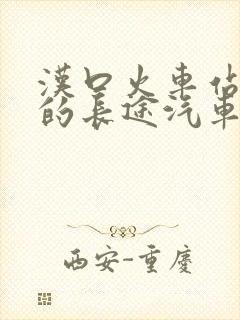 漢口火車站
的長途汽車
西安-重慶